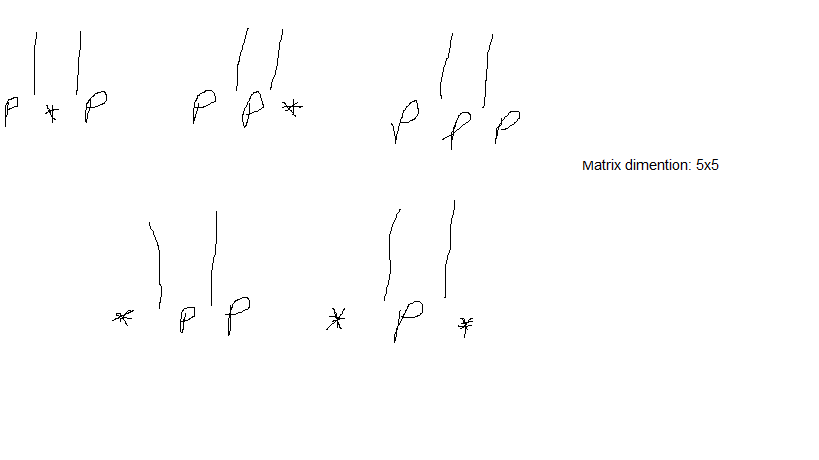 P * P P P * P P P
Matrix dimention: 5x5
* P P * P *